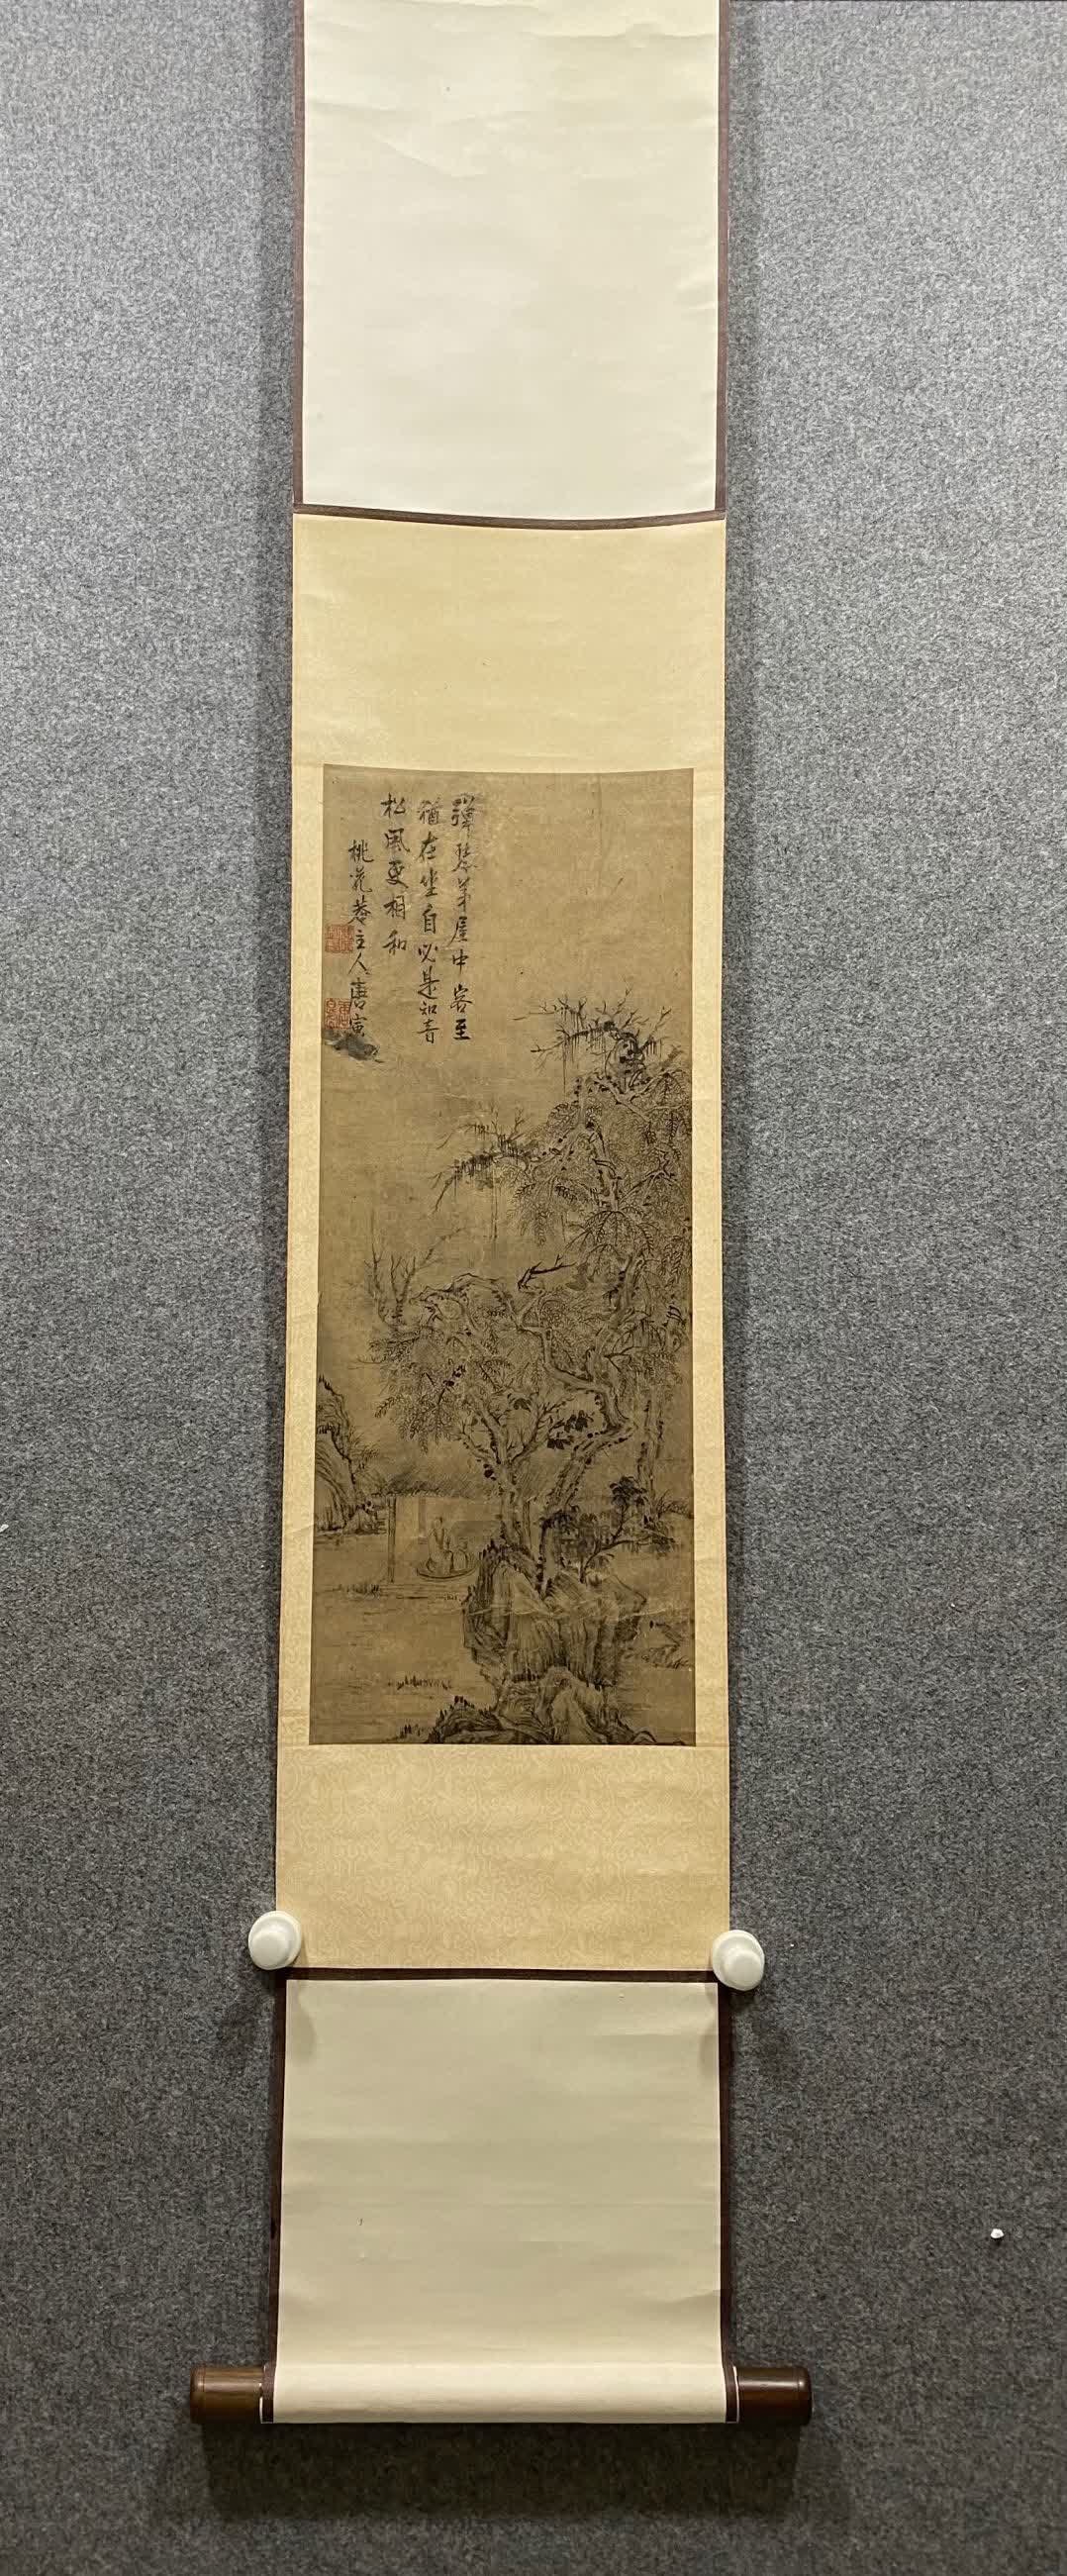 彈琴茅屋中客至
猶在坐自必是知音
松風更相和
桃花菴主人唐寅